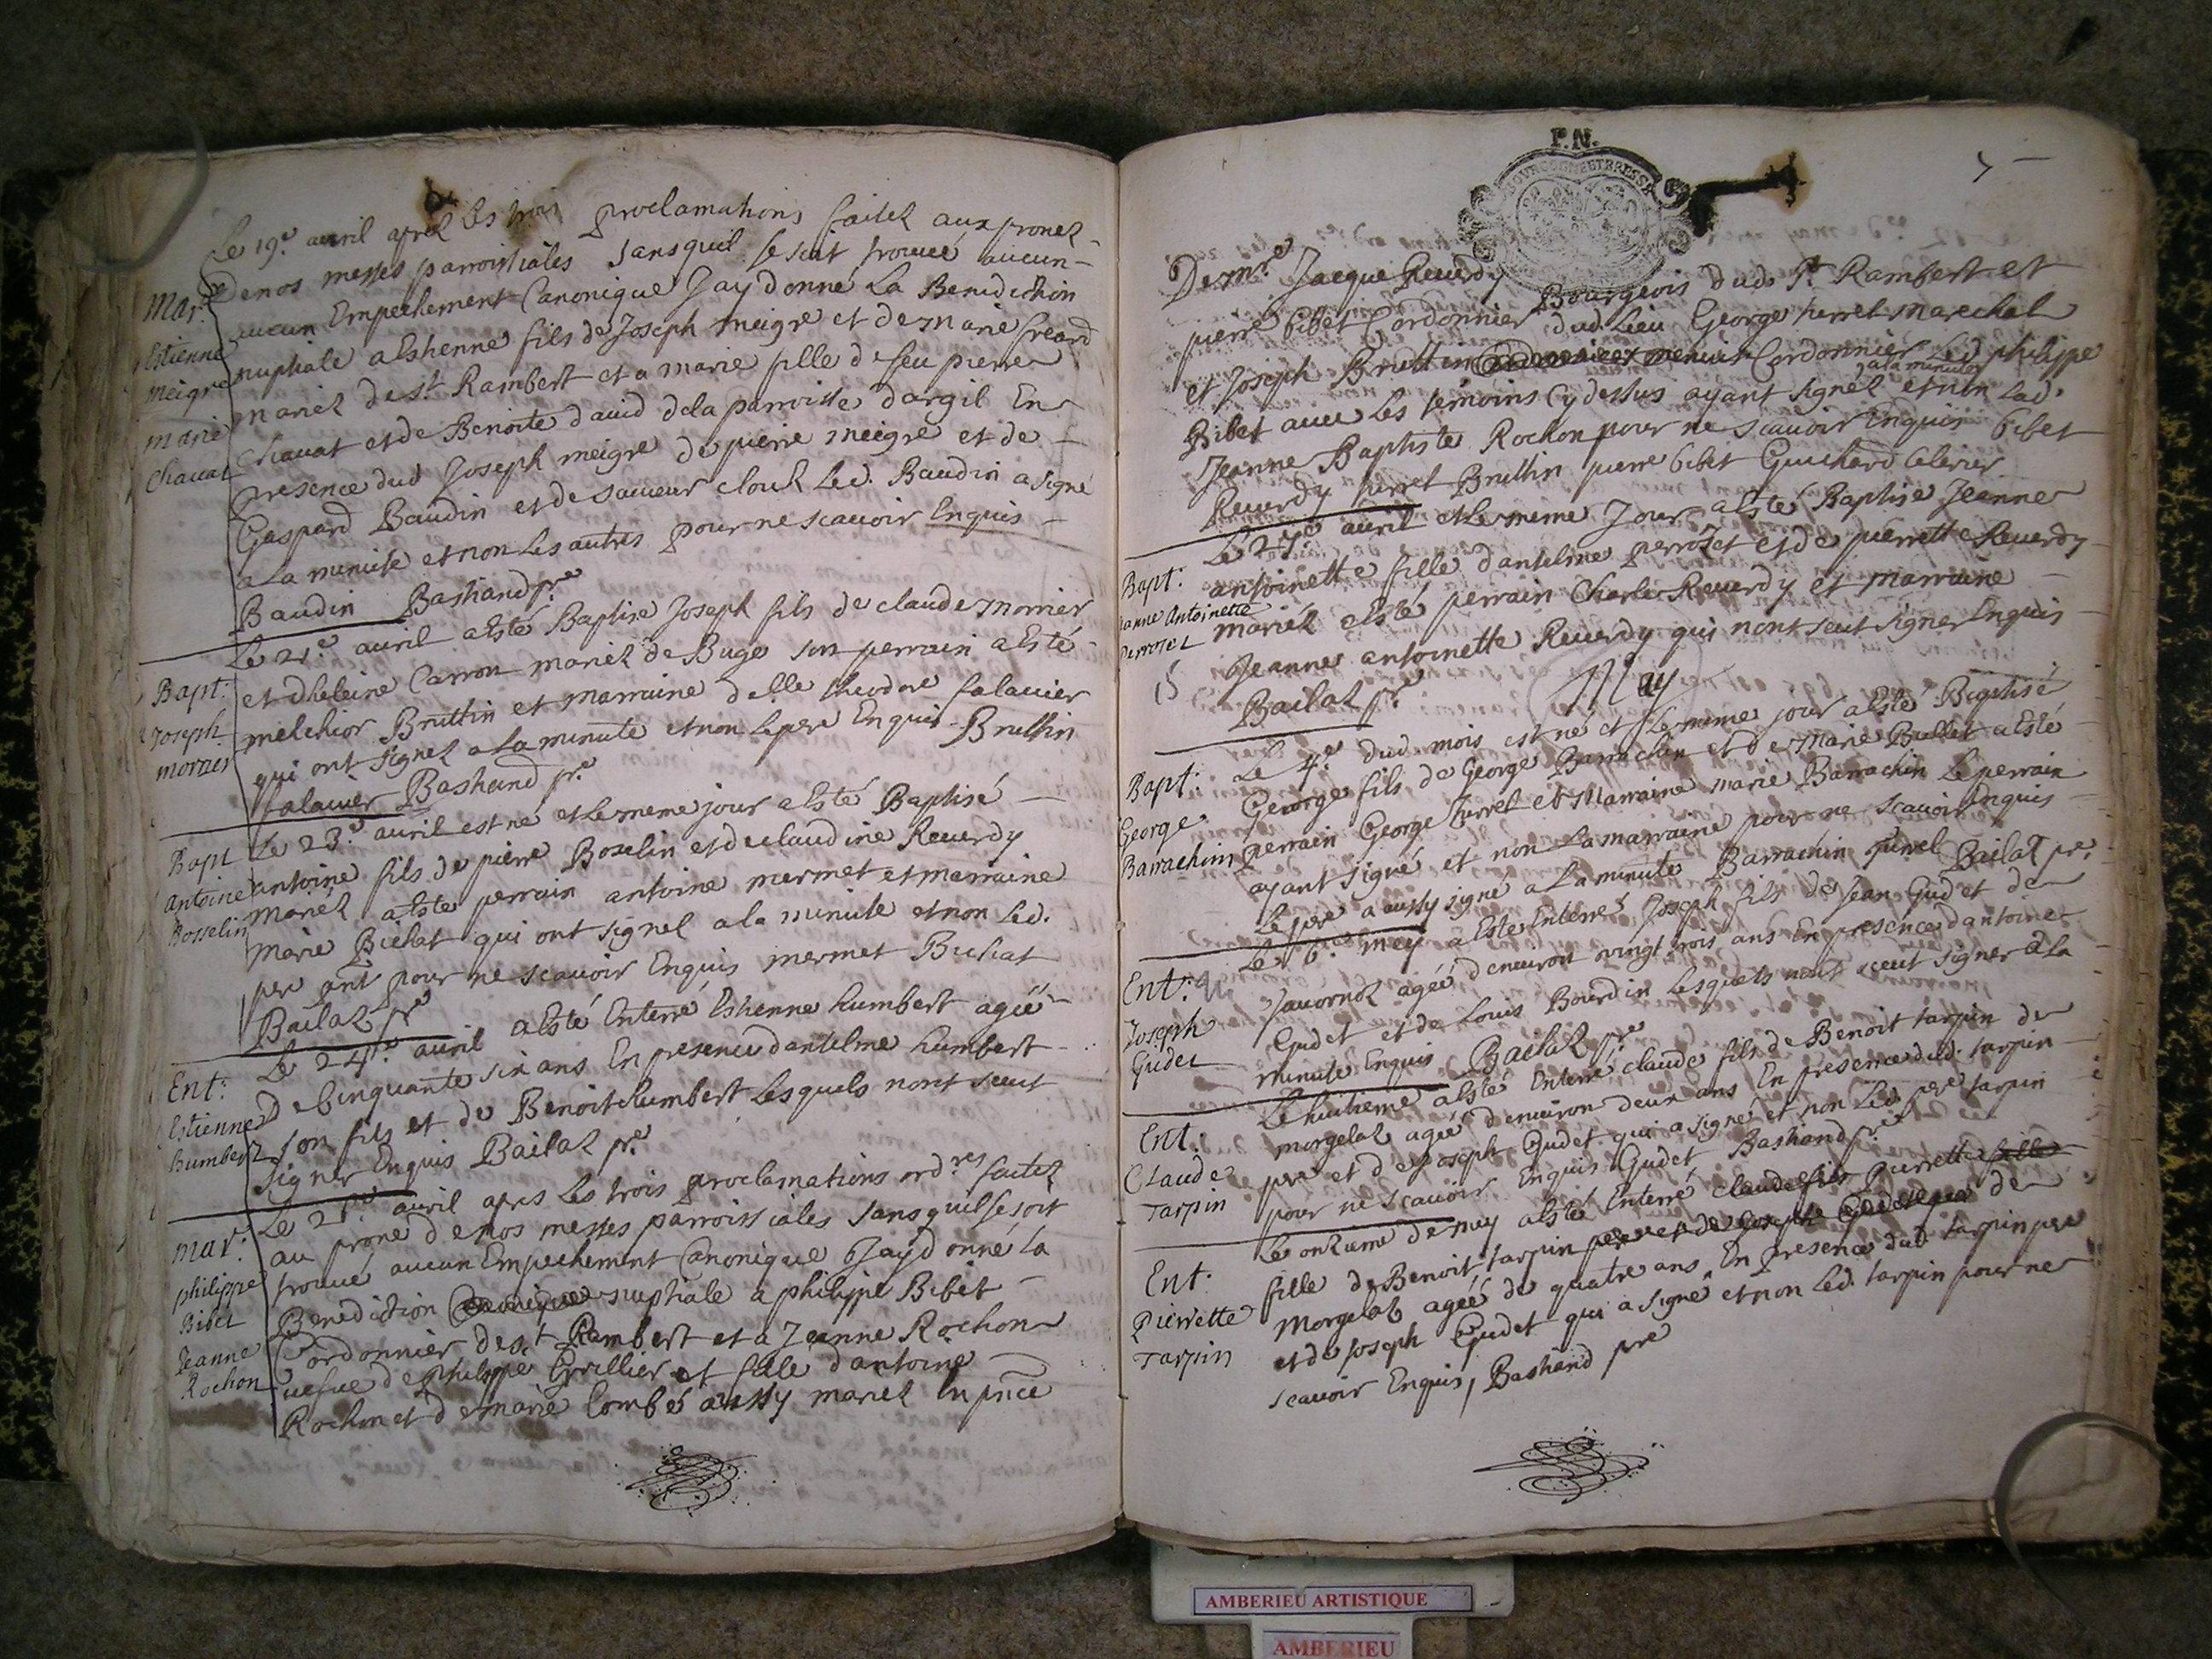 Le 19.e avril aprez les trois proclamations faitez aux pronez
de nos messes parroissiales sans quil se soit trouvé aucun
Mar:
aucun Empechement Canonique Jay donné La Benediction
Estienne
nuptiale a Estienne fils de Joseph meigre et de marie freard
meigre
mariez de St. Rambert et a marie fille de feu pierre
marie
chavat et de Benoite david de la parroisse dargil En
chavat
presence dud Joseph meigre de pierre meigre et de
Gaspard Baudin et de sauveur clouk Led. Baudin a signé
a La minute et non Les autres pour ne scavoir Enquis
Baudin Bashand pre
Le 21.e avril a Esté Baptise Joseph fils de claude morrier
Bapt:
et dheleine Carron mariez de Buges son perrain a Esté
Joseph
melchior Bruttin et marraine delle theodore falavier
morrier
qui ont signez a La minute et non Le pere Enquis Bruttin
falavier Bashand pre
Bapt
Le 23.e avril est ne et Le meme jour a Esté Baptisé
Antoine
antoine fils de pierre Bosselin et de claudine Reverdy
Bosselin
mariéz a Esté perrain antoine mermet et marraine
marie Bichat qui ont signez a la minute et non Led.
pere ant pour ne scavoir Enquis mermet Bichat
Bailaz pre
Ent:
Le 24.e avril a Esté Enterré Estienne humbert agéé
Estienne
de Cinquante six ans En presence dantelme humbert
humbert
son fils et de Benoit humbert Lesquels nont sceut
signer Enquis Bailaz pre
Mar:
Le avril apres Les trois proclamations ordres faitez
au prone de nos messes parroissiales sans quil se soit
philippe
trouvé aucun Empechement Canonique Jay donné la
Bibet
Benediction nuptiale a philippe Bibet
Jeanne
Cordonnier de St Rambert et a Jeanne Rochon
Rochon
vefve de philippe Grillier et fille dantoine
Rochon et de marie Combé aussy mariez En pnce
P.N.
BOURGOGNE ET BRESSE
De mre Jacque Reverdy Bourgeois dud St Rambert et
pierre bibet Cordonnier dud. Lieu George turrel marechal
et Joseph Bruttin Cordonnier Led philippe
Bibet avec Les témoins Cy dessus ayant signez a la minute et non Lad.
Jeanne Baptiste Rochon pour ne scavoir Enquis bibet
Reverdy turrel Bruttin pierre bibet Guichard Celerier
Le 27.e avril et Le meme Jour a Esté Baptise Jeanne
Bapt:
antoinette fille dantelme perrozet et de pierrette Reverdy
Jeanne Antoinette
mariéz a Esté perrain Charles Reverdy et marraine
perrozet
Jeanne antoinette Reverdy qui nont sceut signer Enquis
Bailaz pre
May
Bapt:
Le 4.e dud. mois est né et Le meme jour a Esté Baptisé
George
George fils de George Barrachin et de Marie Bullet a Esté
Barrachin
perrain George turrel et Marraine marie Barrachin Le perrain
ayant signé et non La marraine pour ne scavoir Enquis
Le pere a aussy signé a La minute Barrachin turrel Bailaz pre
Ent:
Le 6.e mey a Esté Enterré Joseph fils de Jean Gudet et de
Joseph
Javornoz agéé denviron vingt trois ans En presence dantoine
Gudet
Gudet et de Louis Bourdin Lesquels nont sceut signer a La
minute Enquis Bailaz pre
Ent:
Le huitieme a Esté Enterré claude fils de Benoit tarpin de
Claude
morgelaz agéé denviron deux ans En presence dud. tarpin
Tarpin
pere et de Joseph Gudet qui a signé et non Led. pere tarpin
pour ne scavoir Enquis Gudet Bashand pre
Ent:
Le onzieme de may a Esté Enterré claude fils pierrette fille
Pierrette
fille de Benoit tarpin pere et de Joseph Gudet de
Tarpin
Morgelaz agéé de quatre ans En presence dud tarpin pere
et de Joseph Gudet qui a signé et non Led. tarpin pour ne
scavoir Enquis, Bashand pre
AMBERIEU ARTISTIQUE
AMBERIEU